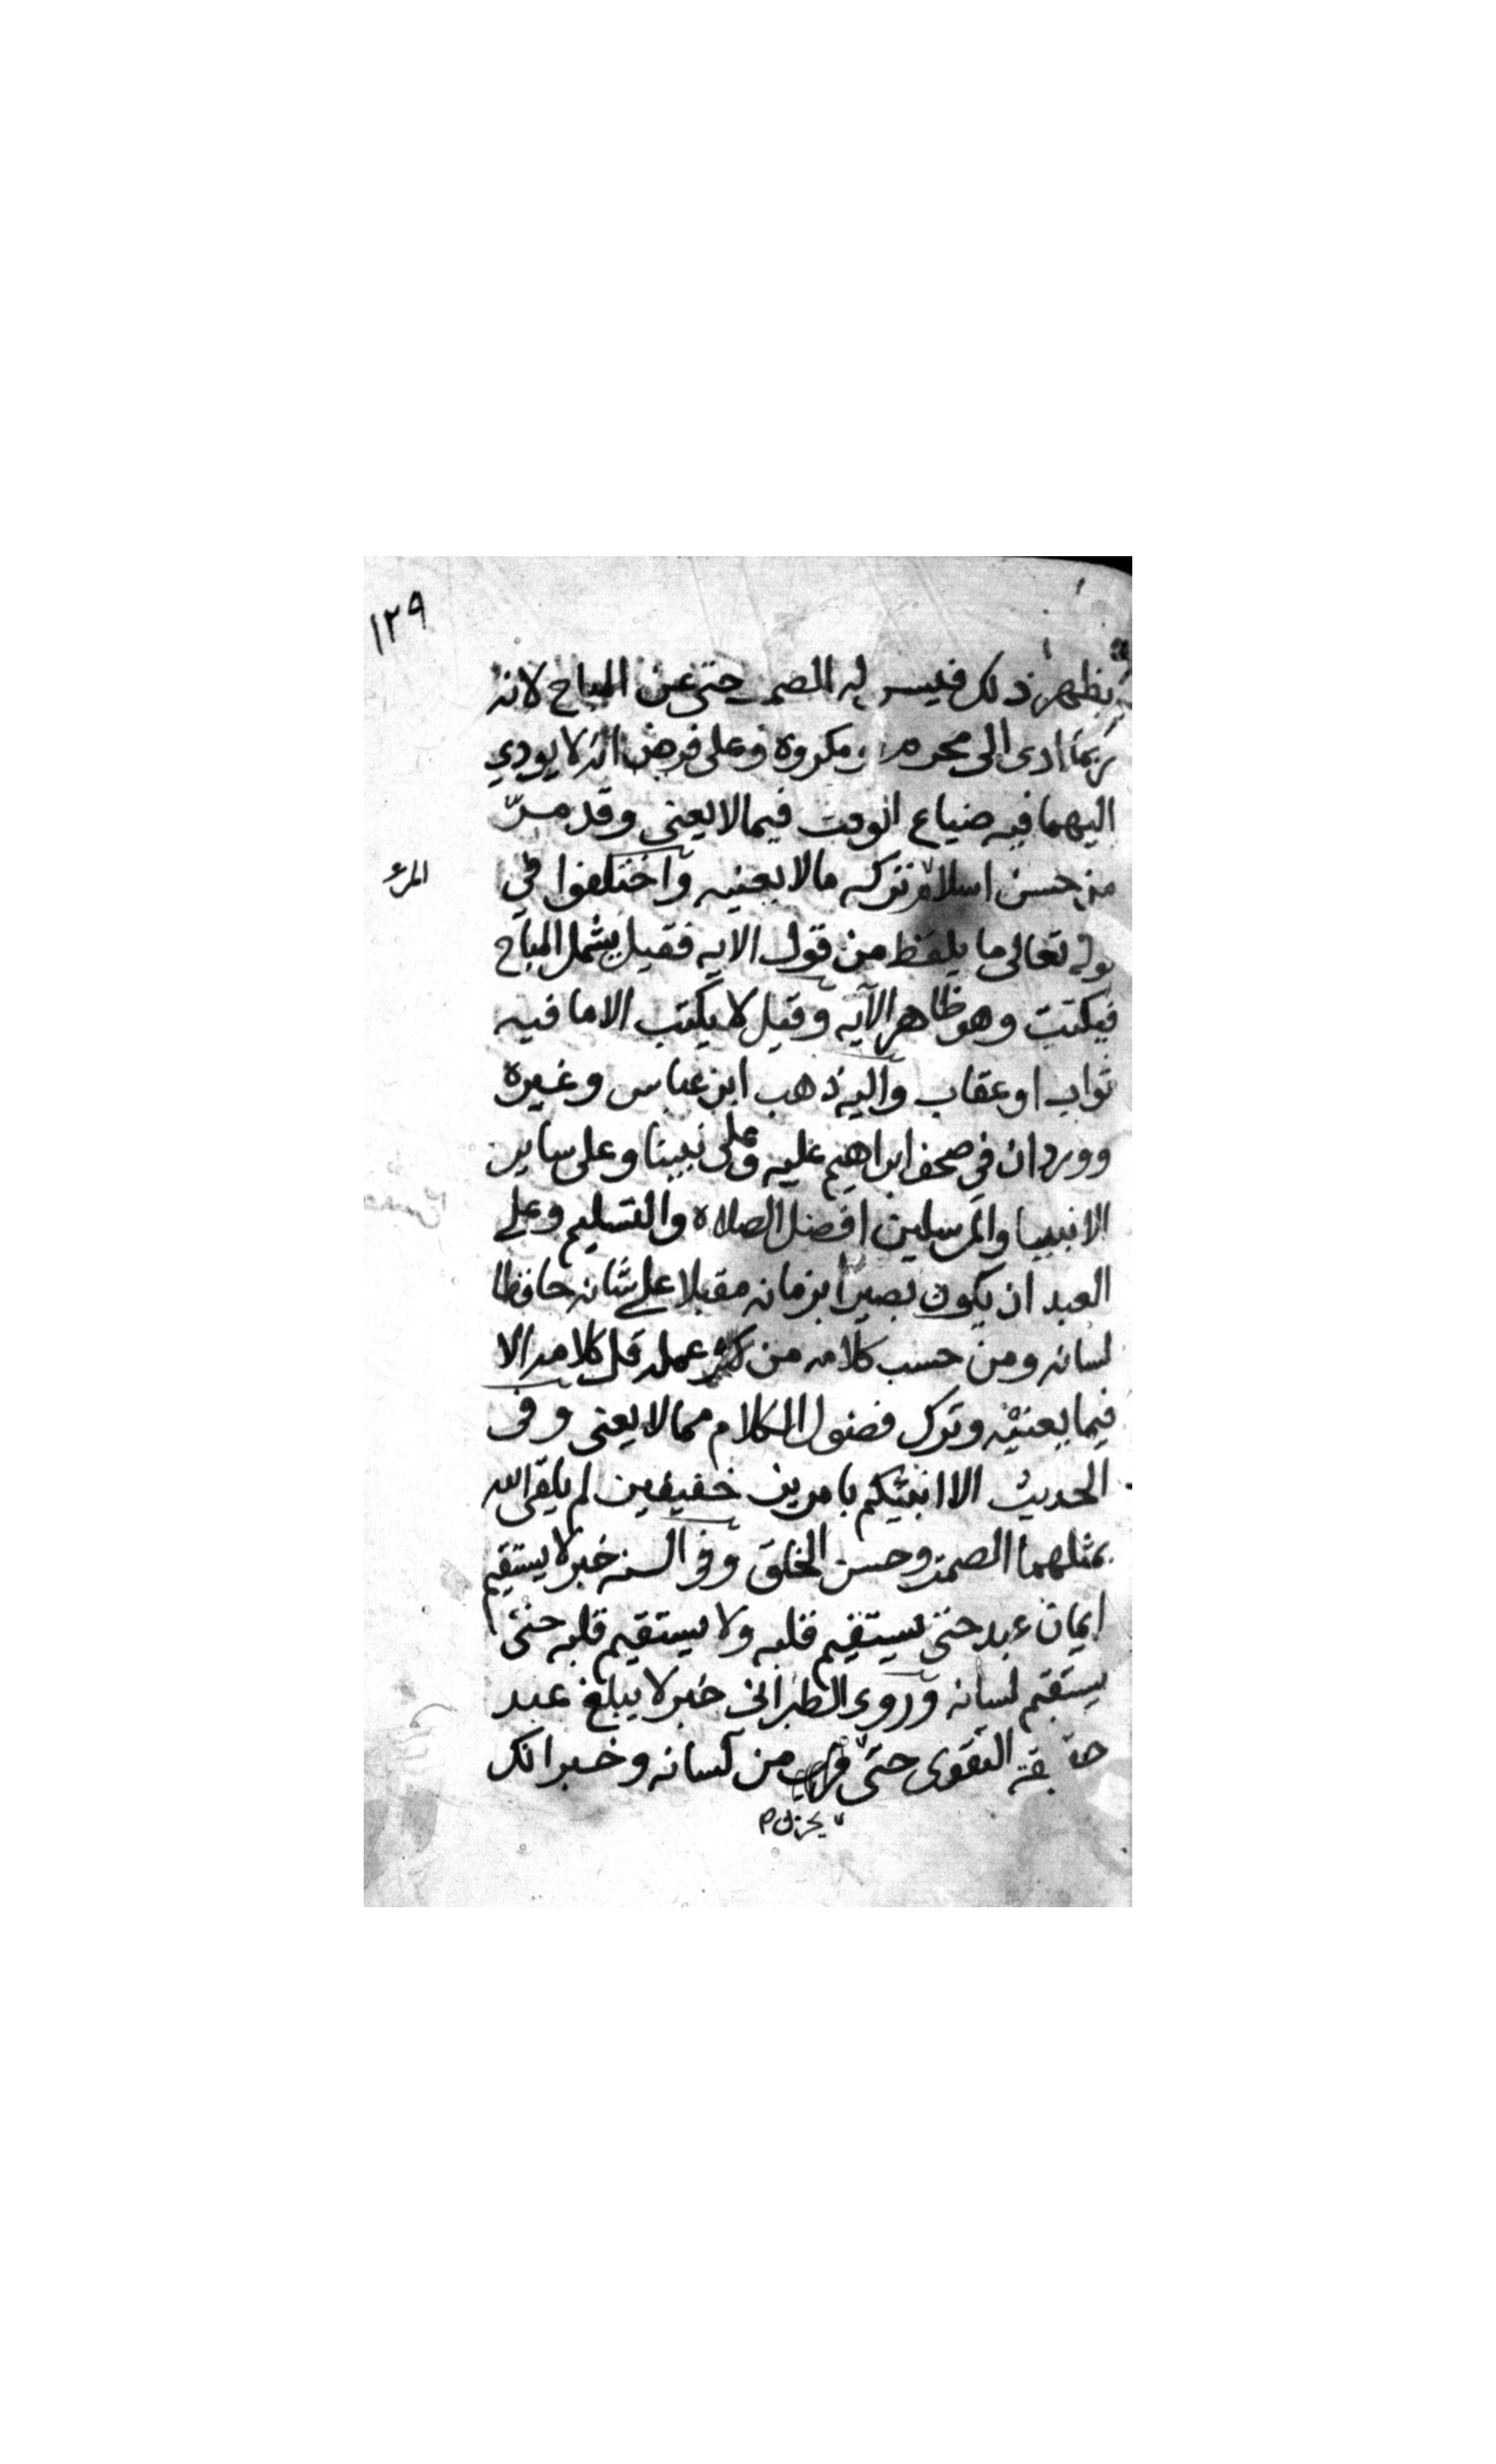 ١٢٩
يظهر ذلك فيسن له الصمت حتى عن المباح لانه
ربما ادى الى محرم ومكروه وعلى فرض انه لا يودي
اليهما فيه ضياع الوقت فيما لا يعني وقد مرّ
من حسن اسلام تركه ما لا يعنيه واختلفوا في
المرء
قوله تعالى ما يلفظ من قول الايه فقيل يشمل المباح
فيكتب وهو ظاهر الآيه وقيل لا يكتب الا ما فيه
ثواب او عقاب واليه ذهب ابن عباس وغيره
وورد ان في صحف ابراهيم عليه وعلى نبينا وعلى ساير
الانبيا والمرسلين افضل الصلاه والتسليم وعلى
العبد ان يكون بصيرا بزمانه مقبلا على شانه حافظا
لسانه ومن حسب كلامه من عمله قل كلامه الا
فيما يعنيه وترك فضول الكلام مما لا يعني وفي
الحديث الا انبئكم بامرين خفيفين لم يلق الله
بمثلهما الصمت وحسن الخلق وفي السنه خبر لا يستقيم
ايمان عبد حتى يستقيم قلبه ولا يستقيم قلبه حتى
يستقيم لسانه وروى الطبراني خبر لا يبلغ عبد
حقيقة التقوى حتى من لسانه وخبر انك
يخزن م